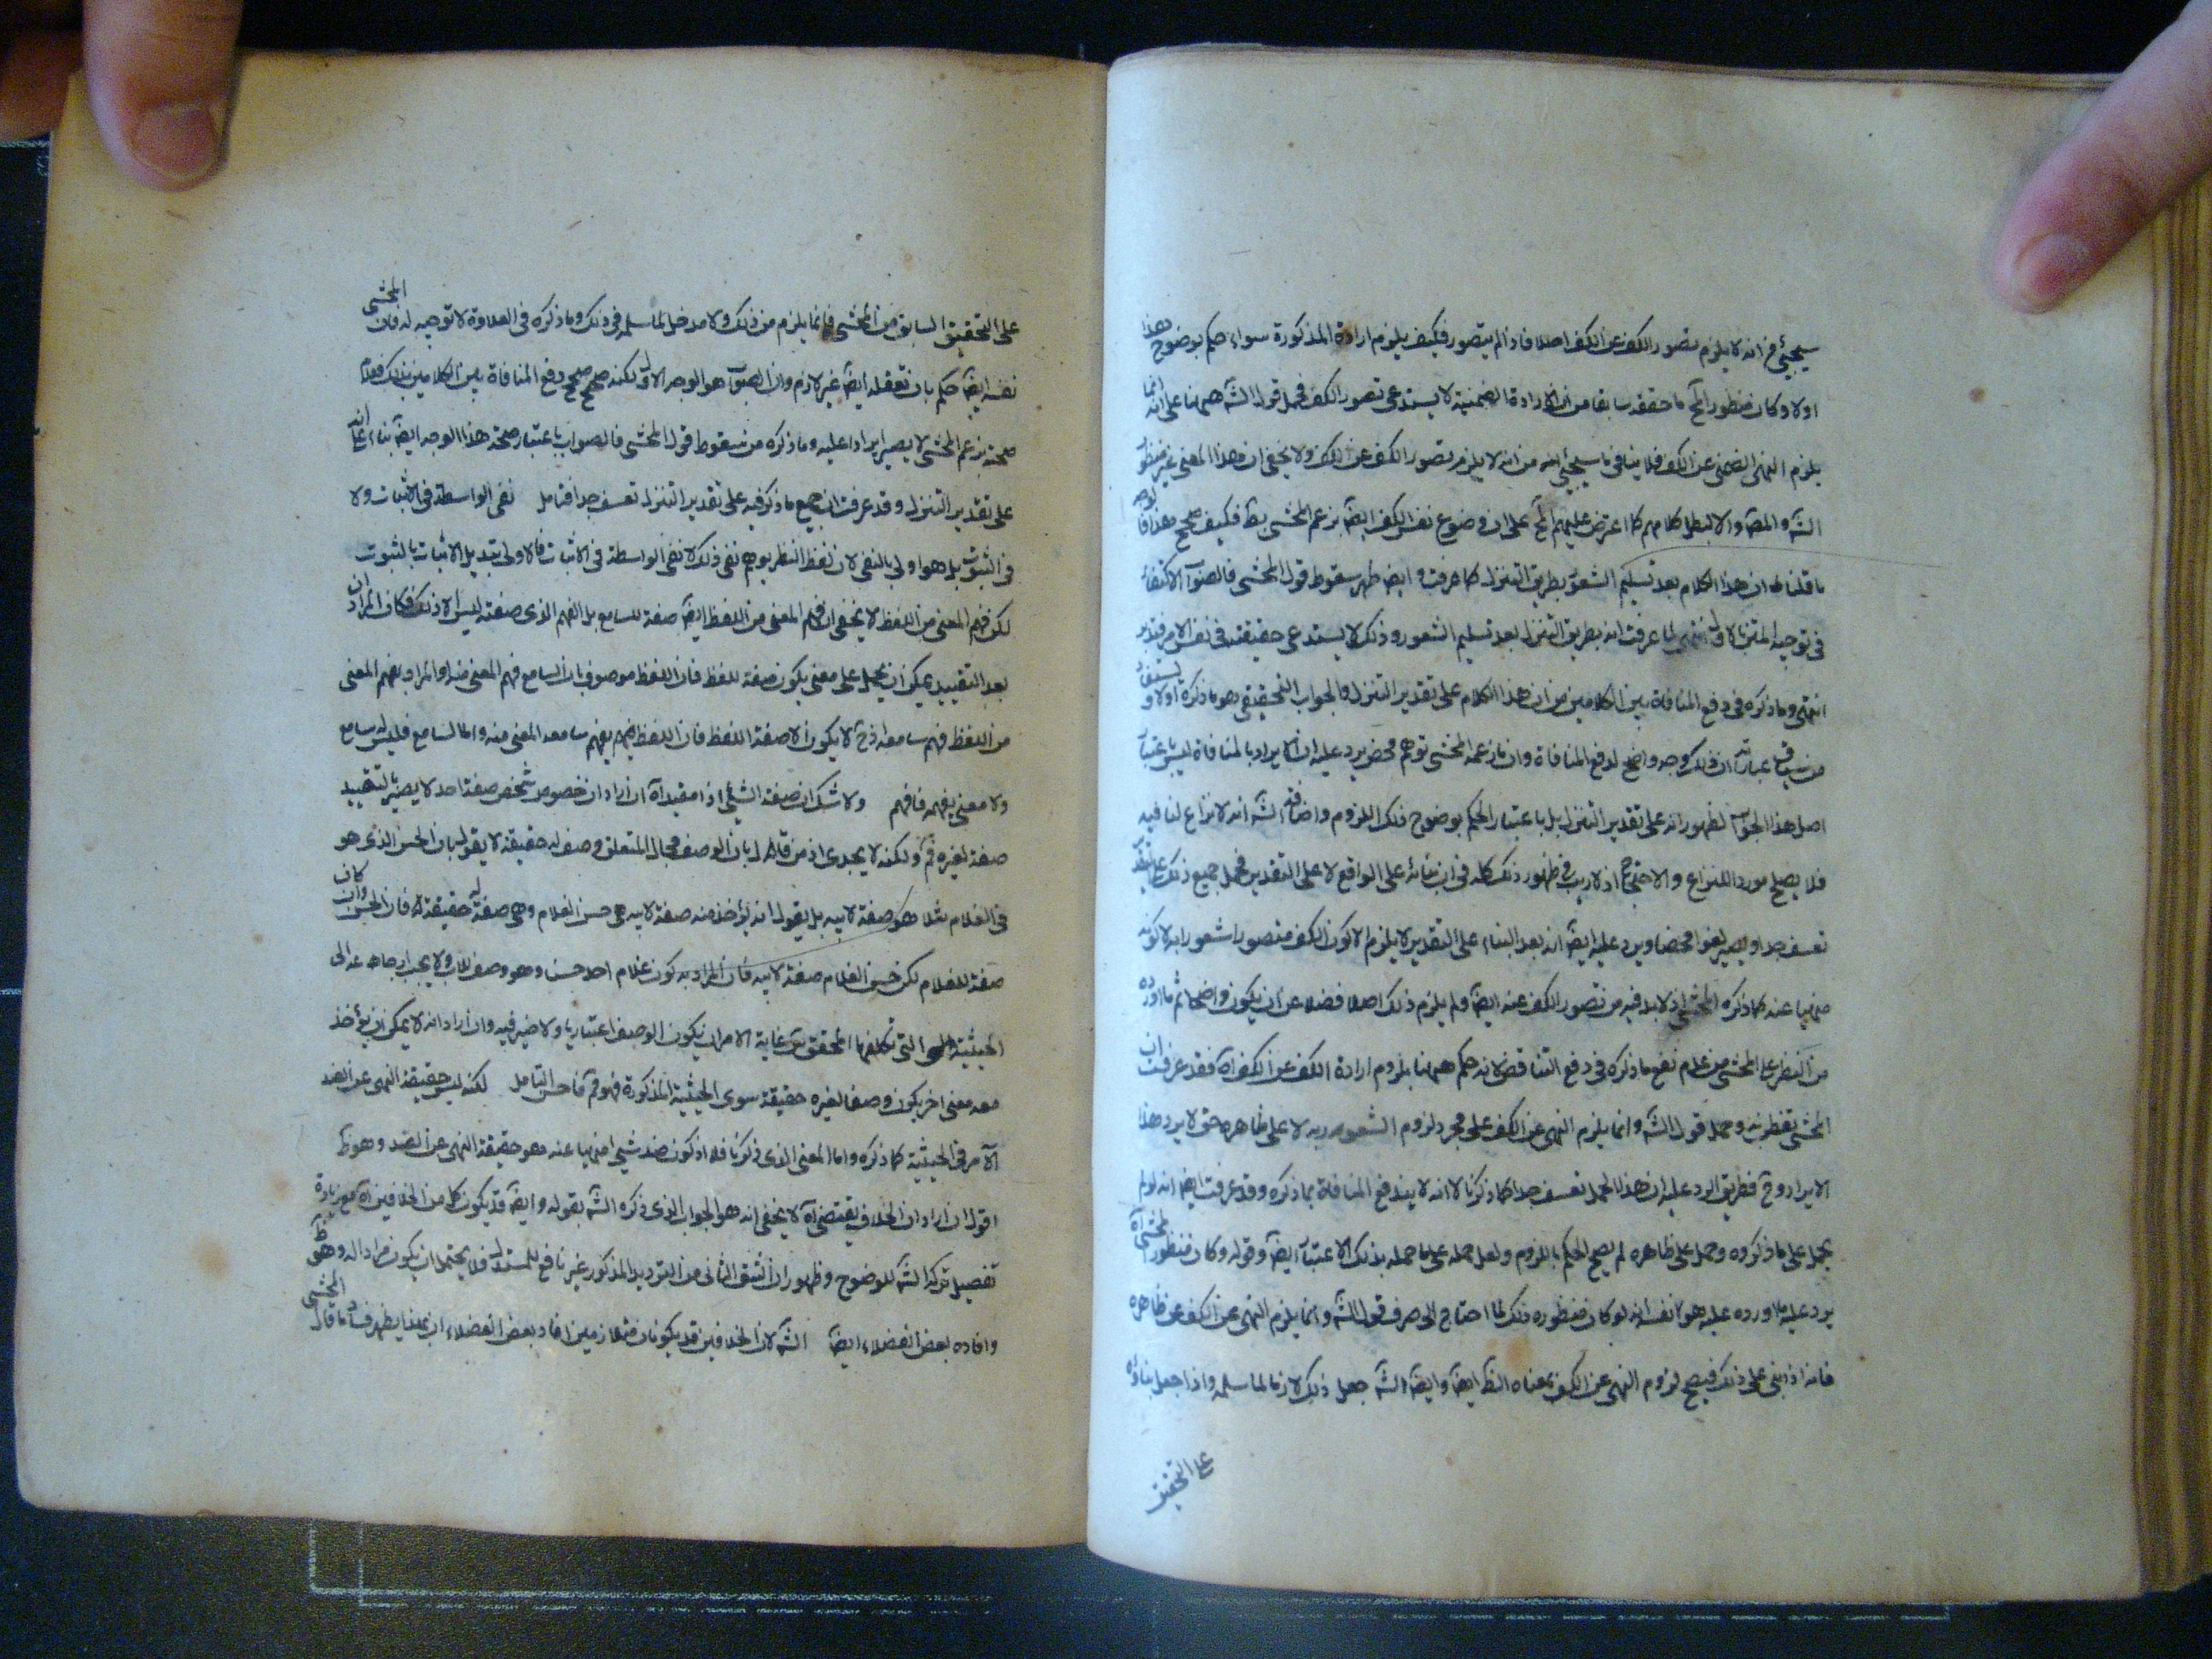 سيجيئ من انه لا يلزم تصور الكف عن الكف اصلا فاذا لم يتصور فكيف يلزم ارادة المذكورة سواء حكم بوضوح هذا
اولا وكان منظور المح ما حققه سابقا من ان الارادة الضمنية لا يستدعى تصور الكف فحمل قول الشه ههنا على انه انما
يلزم النهى الضمنى عن الكف فلا ينافى ما سيجيئ منه من انه لا يلزم تصور الكف عن الكف ولا يخفى ان هذا المعنى غير منظور
الشه والمصه والا لبطل كلامهم كما اعترض عليهم المح على ان وضوح نفس الكف ايضا بزعم المحشى بط فكيف صح هذا
ما قلنا ان هذا الكلام بعد تسليم الشعور بطريق التنزل كما عرفت وايضا ظهر سقوط قول المحشى فالصواب الاكتفاء
فى توجيه المتن بالاول انتهى لما عرفت انه بطريق التنزل بعد تسليم الشعور وذلك لا يستدعى حقيقته فى نفس الامر فتدبر
انتهى وما ذكره فى دفع المنافاة بين الكلامين من ان هذا الكلام على تقدير التنزل والجواب التحقيقى هو ما ذكره اولا و يستفاد
من سياق عبارته ان ذلك وجه واضح لدفع المنافاة وان ما زعمه المحشى توهم محض يرد عليه ان الايراد بالمنافاة ليس باعتبار
اصل هذا الجواب لظهور انه على تقدير التنزل بل باعتبار الحكم بوضوح ذلك اللزوم واضافة الشه انه لا نزاع لنا فيه
فلا يصلح موردا للنزاع والاحتجاج اذ لا ريب فى ظهور ذلك كله فى ان بنائه على الواقع لا على التقدير فحمل جميع ذلك على التقدير
تعسف جدا ويصير لغوا محضا ويرد عليه ايضا انه بعد البناء على التقدير لا يلزم الا كون الكف متصورا شعورا به لا كونه
منهيا عنه كما ذكره المحشى اذ لا بد فيه من تصور الكف عنه ايضا ولم يلزم ذلك اصلا فضلا عن ان يكون واضحا ثم ما اورده
من النظر على المحشى من عدم نفع ما ذكره فى دفع التناقض لانه حكم ههنا بلزوم ارادة الكف عن الكف اه فقد عرفت ان
المحشى تفطن به وحمل قول الشه وانما يلزم النهى عن الكف على مجرد لزوم الشعور به لا على ظاهره حتى لا يرد هذا
الايراد وح فطريق الرد عليه ان هذا الحمل تعسف جدا كما ذكرنا لا انه لا يندفع المنافاة بما ذكره وقد عرفت ايضا انه لو لم
يحمل على ما ذكروه وحمل على ظاهره لم يصح الحكم باللزوم ولعل حمله على ما حمله بذلك الاعتبار ايضا وقوله وكان منظور المحشى اه
يرد عليه ما اورده عليه هو لا نفسه انه لو كان منظوره ذلك لما احتاج الى صرف قول الشه وانما يلزم النهى عن الكف عن ظاهره
فانه اذا بنى على ذلك فيصح لزوم النهى عن الكف بمعناه الظ ايضا وايضا الشه جعل ذلك لازما لما سلمه واذا جعل بناؤه
على التحقيق
على التحقيق السابق من المحشى فانما يلزم من ذلك ولا مدخل لما سلمه فى ذلك وما ذكره فى العلاوة لا توجيه له فان المحشى
نفسه ايضا حكم بان تعقله ايضا غير لازم وان الصواب هو الوجه الاول لكنه صحح دفع المنافاة بين الكلامين بذلك فعدم
صحته بزعم المحشى لا يصير ايرادا عليه وما ذكره من سقوط قول المحشى فالصواب باعتبار صحة هذا الوجه ايضا بناء على انه
على تقدير التنزل وقد عرفت ان جميع ما ذكر فيه على تقدير التنزل تعسف جدا فتامل نفى الواسطة فى الاثبات ولا
فى الثبوت بل هو اولى بالنفى لان لفظ النظر يوهم نفى ذلك لا نفى الواسطة فى الاثبات فالاولى تبديل الاثبات بالثبوت
لكن فهم المعنى من اللفظ لا يخفى ان فهم المعنى من اللفظ ايضا صفة للسامع بل الفهم الذى صفته ليس الا ذلك فكان المراد ان
بعد التقييد يمكن ان يحمل على معنى يكون صفة للفظ فان اللفظ موصوف بان السامع فهم المعنى منه او المراد بفهم المعنى
من اللفظ فهم سامعه اذ ح لا يكون الا صفة اللفظ فان اللفظ يفهم سامعه المعنى منه واما السامع فليس له سامع
ولا معنى يفهمه فافهم ولا شك ان صفة الشيئ اذا مقيدا اه ان اراد ان خصوص شخص صفة احد لا يصير بالتقييد
صفة لغيره فم ولكنه لا يجدى اذ من قال بان الوصف بحال المتعلق وصف له حقيقة لا يقول بان الحسن الذى هو
فى الغلام مثلا هو صفة لابيه بل يقول انه يؤخذ منه صفة لابيه هى حسن الغلام وهى صفة له حقيقة فان الحسن وان كان
صفة للغلام لكن حسن الغلام صفة لابيه فان المراد به كون غلام احد حسن وهو وصف للاب ولا يجب ارجاعه الى
الحيثية التى تكلفها المحقق بش غاية الامر ان يكون الوصف اعتباريا ولا ضير فيه وان اراد انه لا يمكن ان يؤخذ
معه معنى اخر يكون وصفا لغيره حقيقة سوى الحيثية المذكورة فهو فم فاحسن التامل لكنه ليس حقيقة النهى عن الضد
الامر فى الحيثية كما ذكره واما المعنى الذى ذكرنا فلا اذ كون ضد شيئ منهيا عنه هو حقيقة النهى عن الضد وهو ظ
اقول ان اراد ان الخلاف يقتضى اه لا يخفى انه هو الجواب الذى ذكره الشه بقوله وايضا قد يكون كل من الخلافين اه مع زيادة
تفصيل تركه الشه للوضوح وظهور ان الشق الثانى من الترديد المذكور غير نافع للمستدل فلا يحتمل ان يكون مرادا له وهو ظ
وافاده بعض الفضلاء ايضا الشه لان الخلافين قد يكونان متلازمين افاد بعض الفضلاء ان بهذا يظهر فساد ما قال المحشى